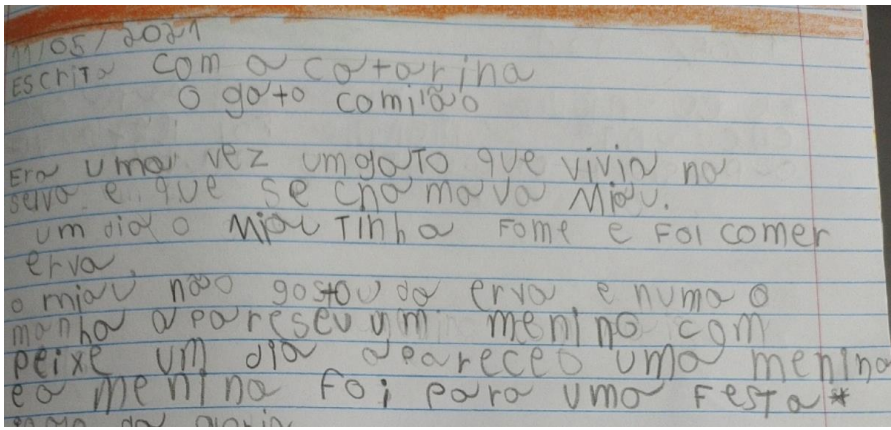 11/05/2021
Escrita com a catarina
O gato comilão
Era uma vez um gato que vivia na
selva e que se chamava Miau.
um dia o Miau Tinha Fome e Foi comer
erva.
o miau não gostou da erva e numa o
manha apareseu um menino com
peixe um dia apareceo uma menina
e a menina foi para uma Festa*